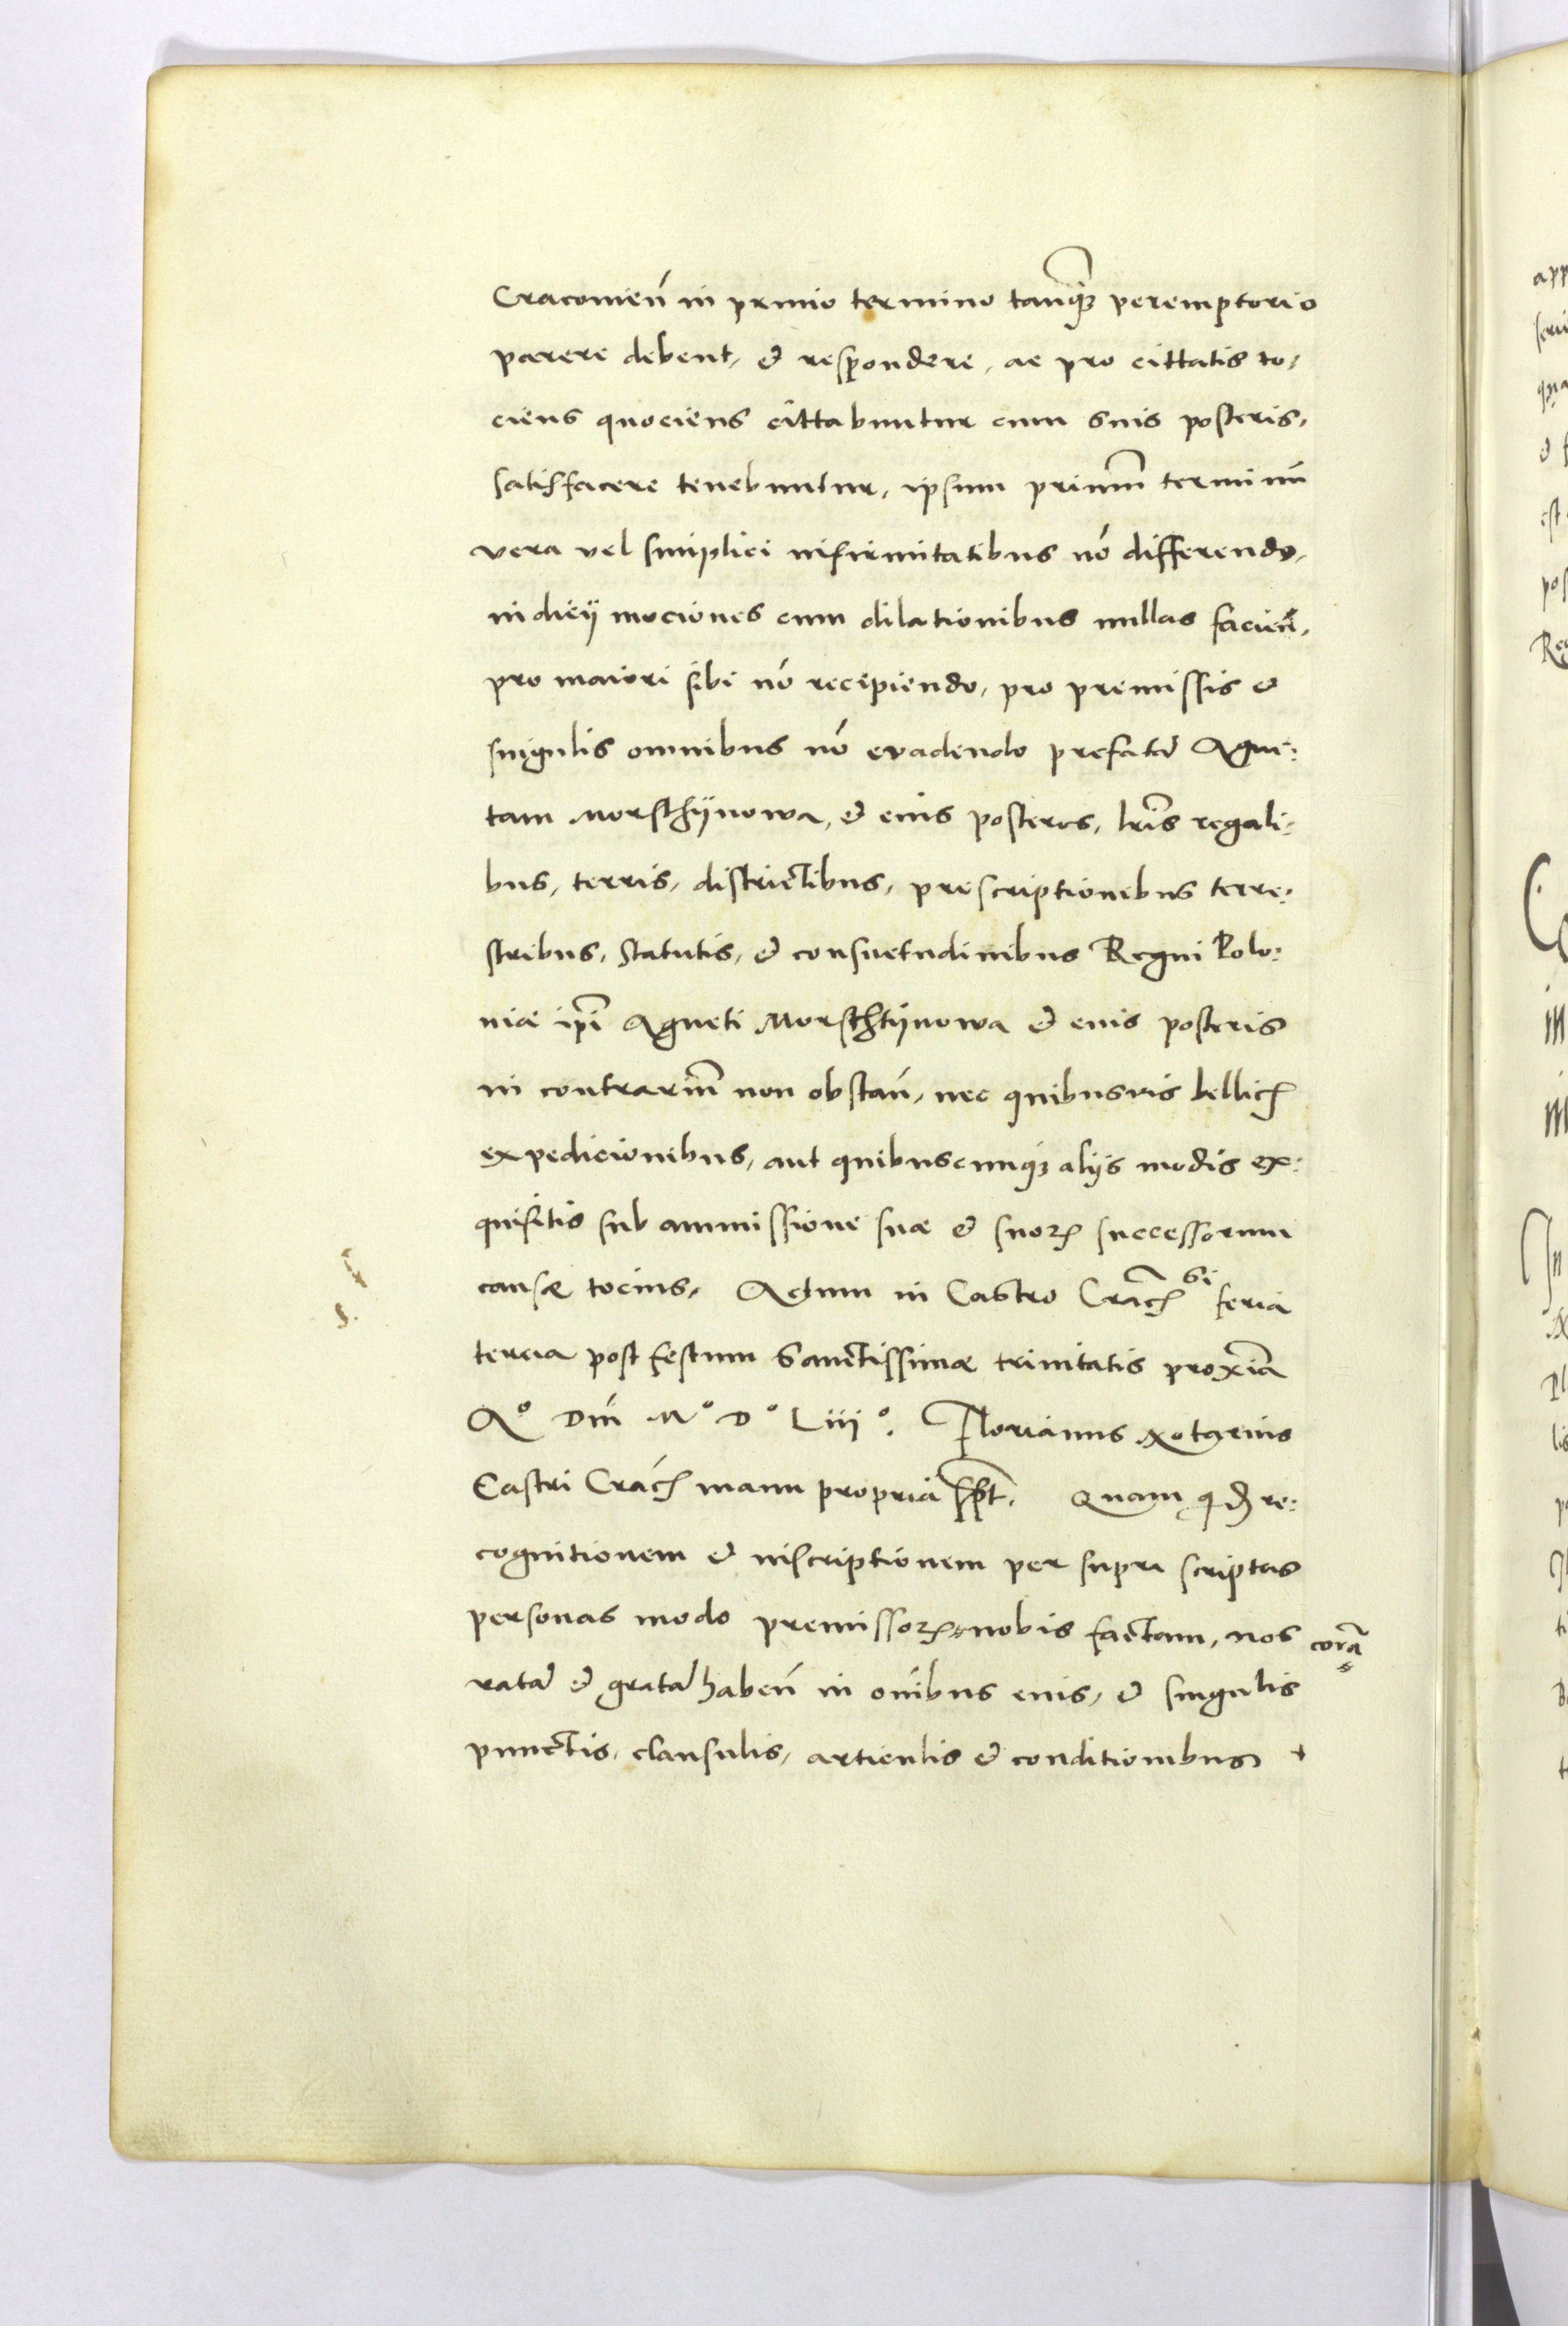 Cracovien̄ in primo termino tanq̄ȝ peremptorio
parere debent, & respondere, ac pro cittatis to,
ciens quociens cittabuntur cum suis posteris,
satisfacere tenebuntur, ipsum primū terminū
vera vel simplici infirmitatibus nō differendo,
indicÿ mociones cum dilationibus nullas facien̄,
pro maiori sibi nō recipiendo, pro premissis &
singulis omnibus nō evadendo prefatā Agne:
tam Morschÿnowa, & eius posteros, lris̄ regali:
bus, terris, districtibus, prescriptionebus terre:
stribus, Statutis, & consuetudinibus Regni Polo:
niæ ip̄i Agneti Morschtÿnowa & eius posteris
in contrariū non obstan̄, nec quibusvis bellicꝫ
expedicionibus, aut quibuscunqȝ alÿs modis ex:
quisitis sub ammissione suæ & suoꝝ successorum
causæ tocius, Actum in Castro Cracꝫ feria
tercia post festum Sanctissimæ trinitatis proxīa
Aº Dn̄i Mº Dº Liijº. Florianus Notarius
Castri Cracꝫ manu propria sſpt̄. Quam qdꝫ re:
cognitionem & inscriptionem per supra scriptas
personas modo premissoꝝ nobis factam, nos corā
ratā & gratā haben̄ in oībus eius, & singulis
punctis, clausulis, articulis & conditionibus +